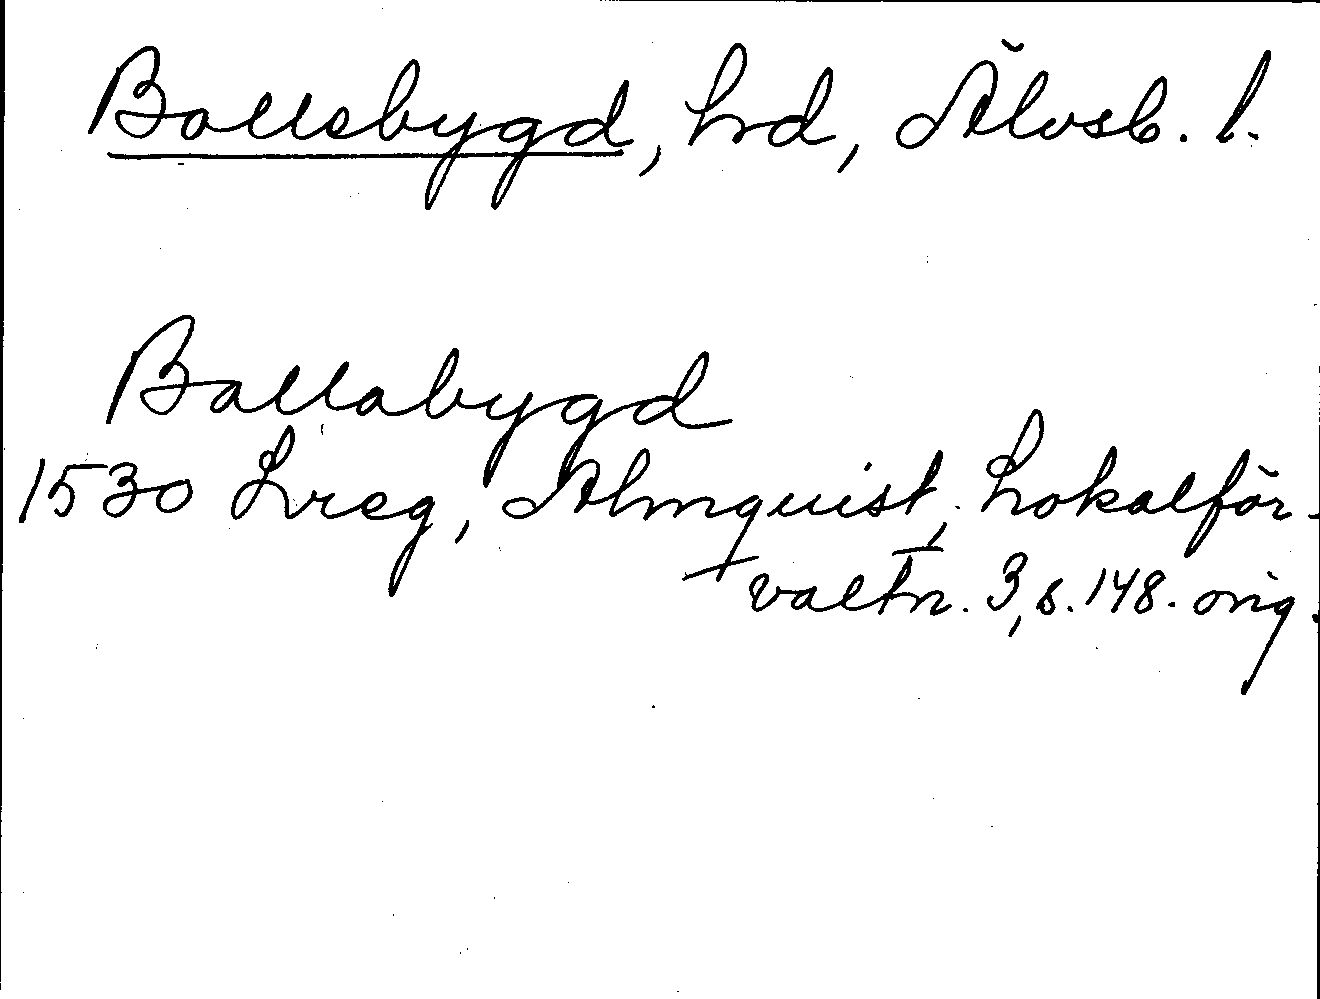 Bollebygd, hrd, Älvsb. l.
Ballabygd
1530 Lreg, Almquist, Lokalför-
valtn. 3, s. 148. orig.